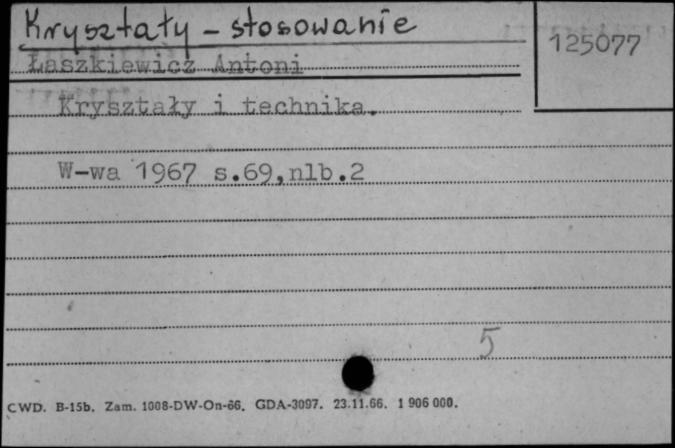 Kryształy - stosowanie
125077
Łaszkiewicz Antoni
Kryształy i technika.
W-wa 1967 s.69,nlb.2
5
CWD. B-15b. Zam. 1008-DW-On-66. GDA-3097. 23.11.66. 1 906 000.